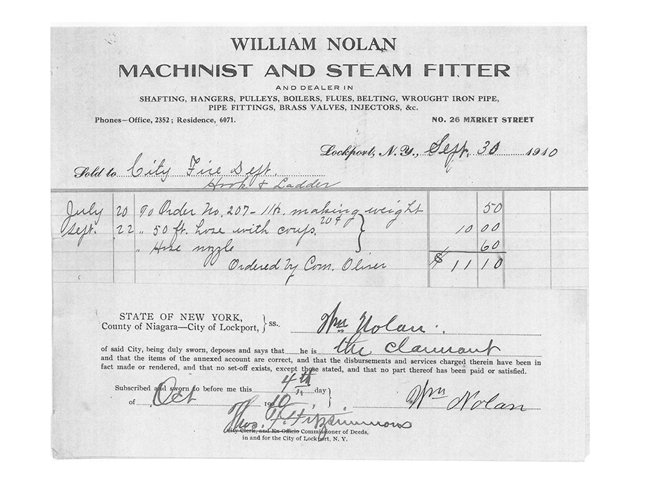 WILLIAM NOLAN
MACHINIST AND STEAM FITTER
AND DEALER IN
SHAFTING, HANGERS, PULLEYS, BOILERS, FLUES, BELTING, WROUGHT IRON PIPE,
PIPE FITTINGS, BRASS VALVES, INJECTORS, &c.
Phones—Office, 2352; Residence, 6071. NO. 26 MARKET STREET
Lockport, N. Y., Sept. 30 1910
Sold to City Fire Dept.
Hook & Ladder
July 20 To Order No. 207 - 1 H. making weight 50
Sept. 22 " 50 ft. hose with coups. 10 00
" Hose nozzle 60
Ordered by Com. Oliver $ 11 10
STATE OF NEW YORK,
County of Niagara—City of Lockport, } ss. Wm Nolan
of said City, being duly sworn, deposes and says that he is the claimant
and that the items of the annexed account are correct, and that the disbursements and services charged therein have been in
fact made or rendered, and that no set-off exists, except those stated, and that no part thereof has been paid or satisfied.
Subscribed and sworn to before me this 4th day
of Oct 1910 Wm Nolan
Thos. F. Fitzsimmons
City Clerk, and Ex Officio Commissioner of Deeds,
in and for the City of Lockport, N. Y.